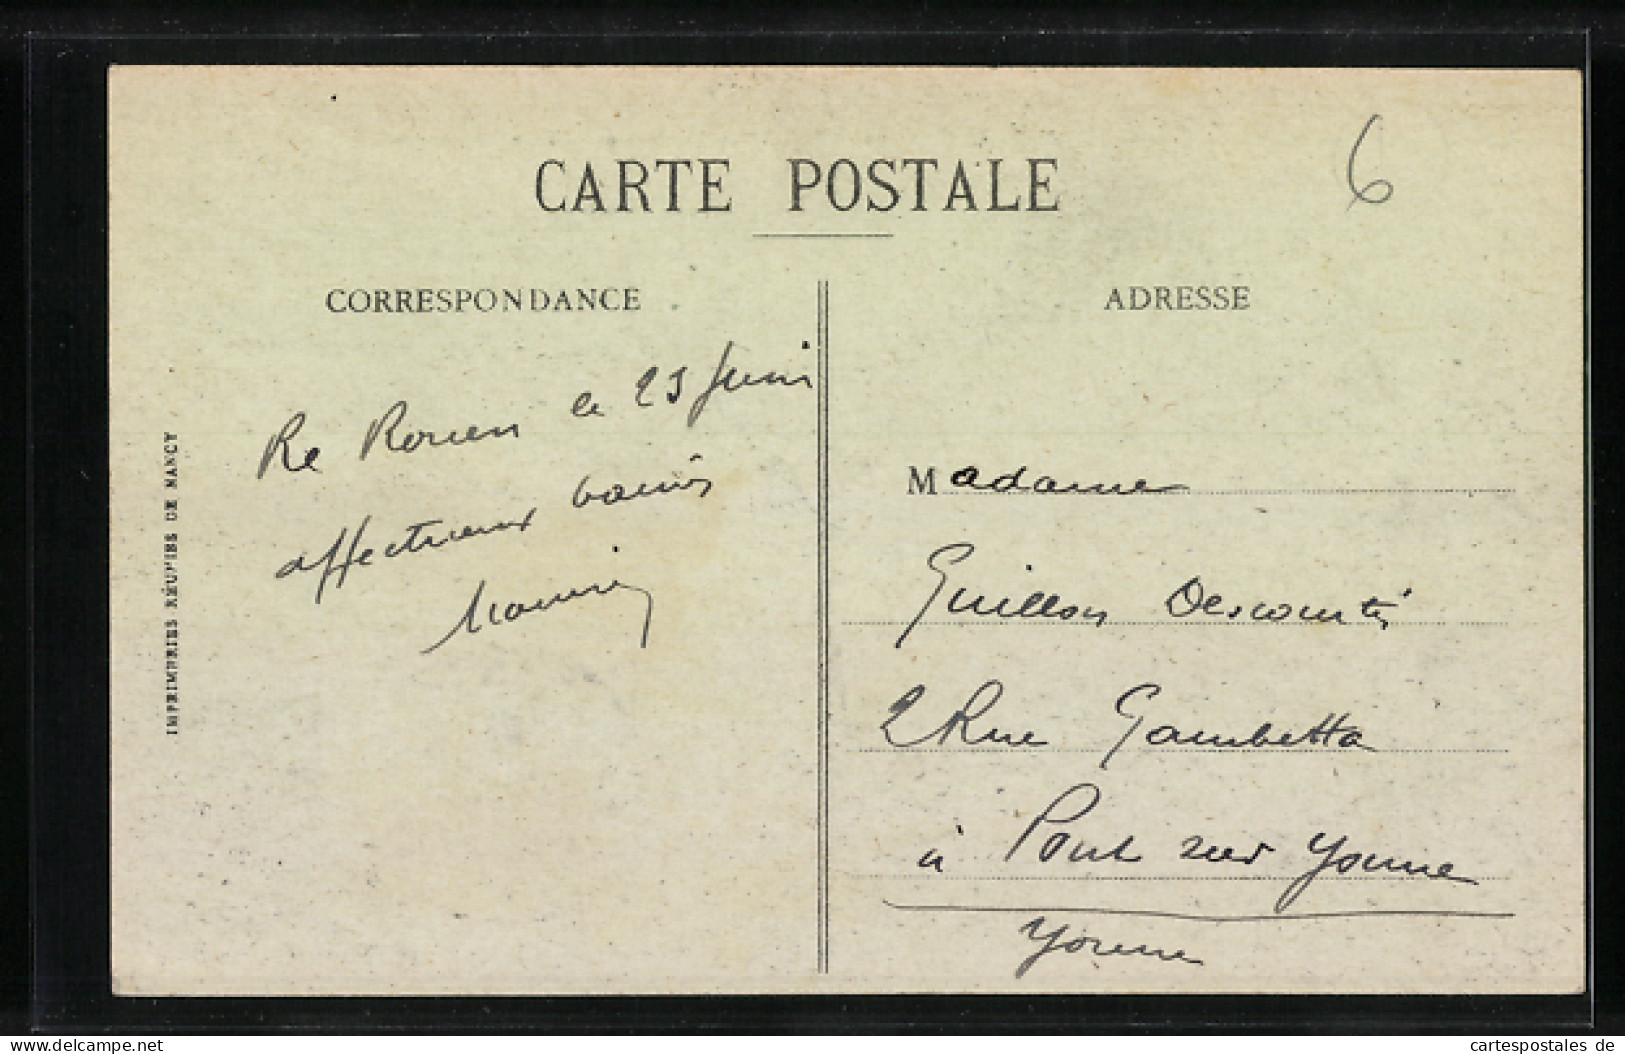 CARTE POSTALE
6
CORRESPONDANCE
Rouen le 23 Juin
affectueux baisers
IMPRIMERIES RÉUNIES DE NANCY
ADRESSE
Madame
Guillon Descourtis
2 Rue Gambetta
à Pont sur Yonne
Yonne
delcampe.net
cartespostales de